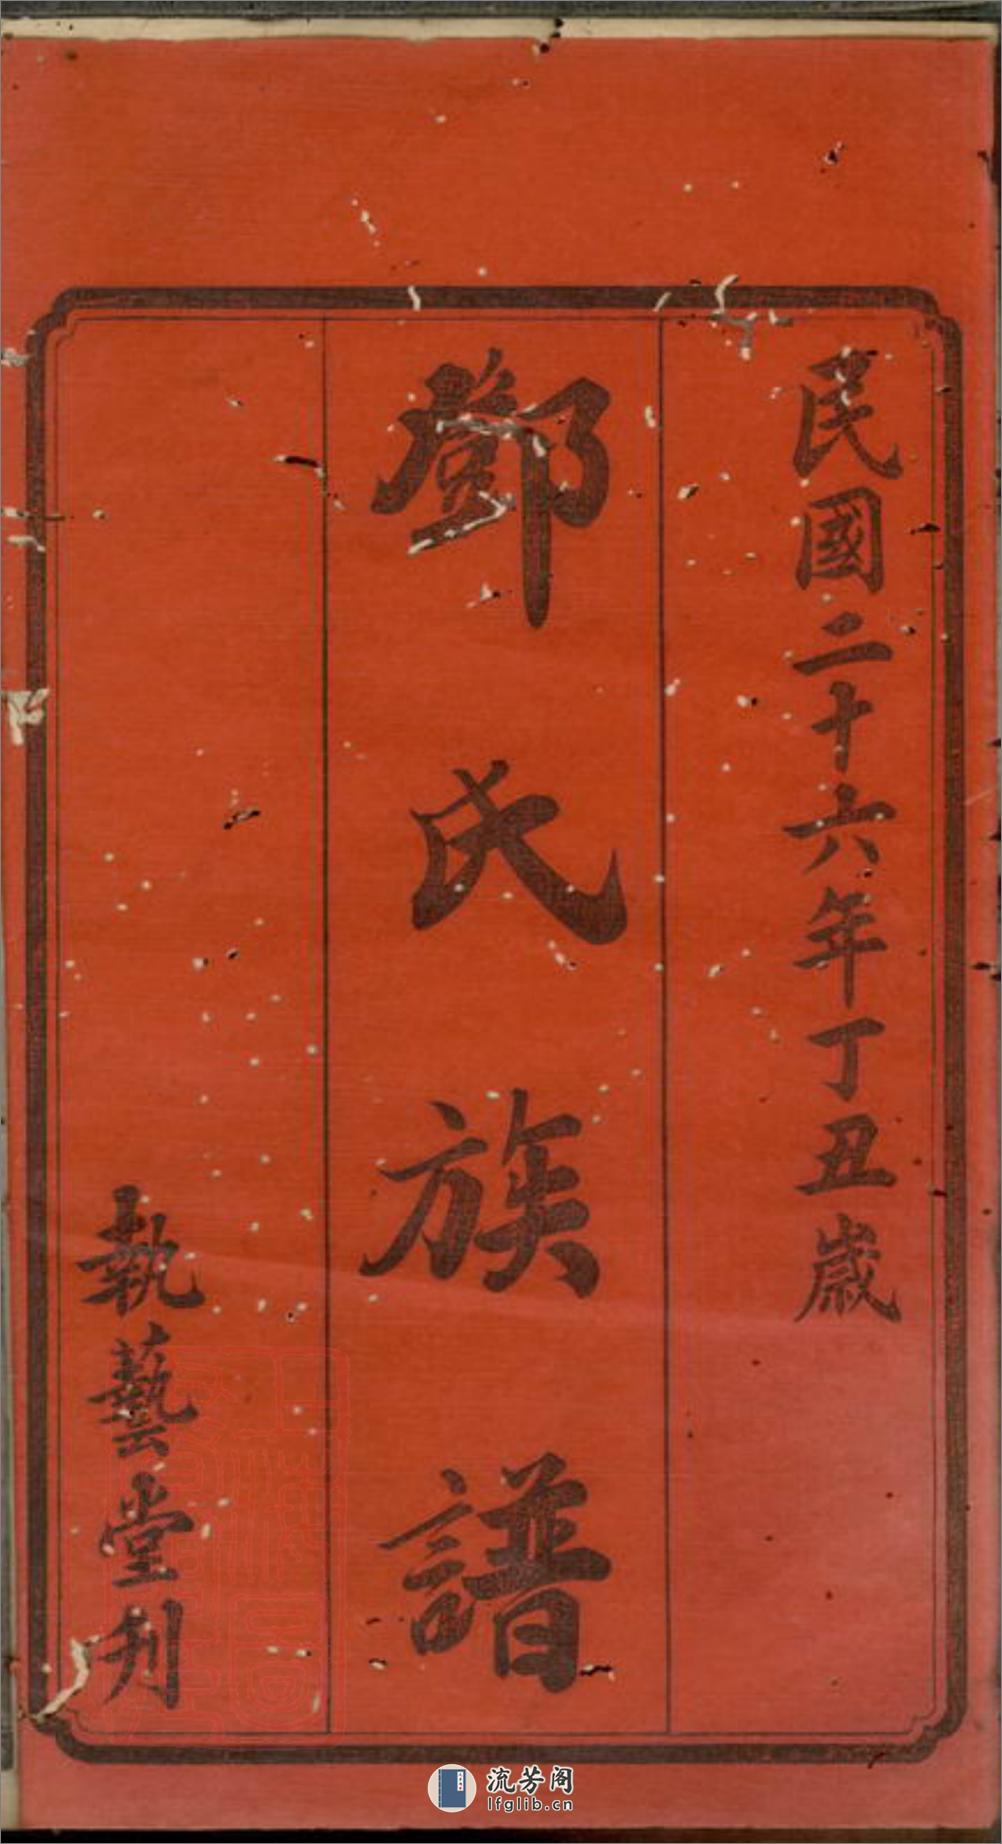 民國二十六年丁丑歲
鄧氏族譜
執藝堂刋
流芳阁
lfglib.cn